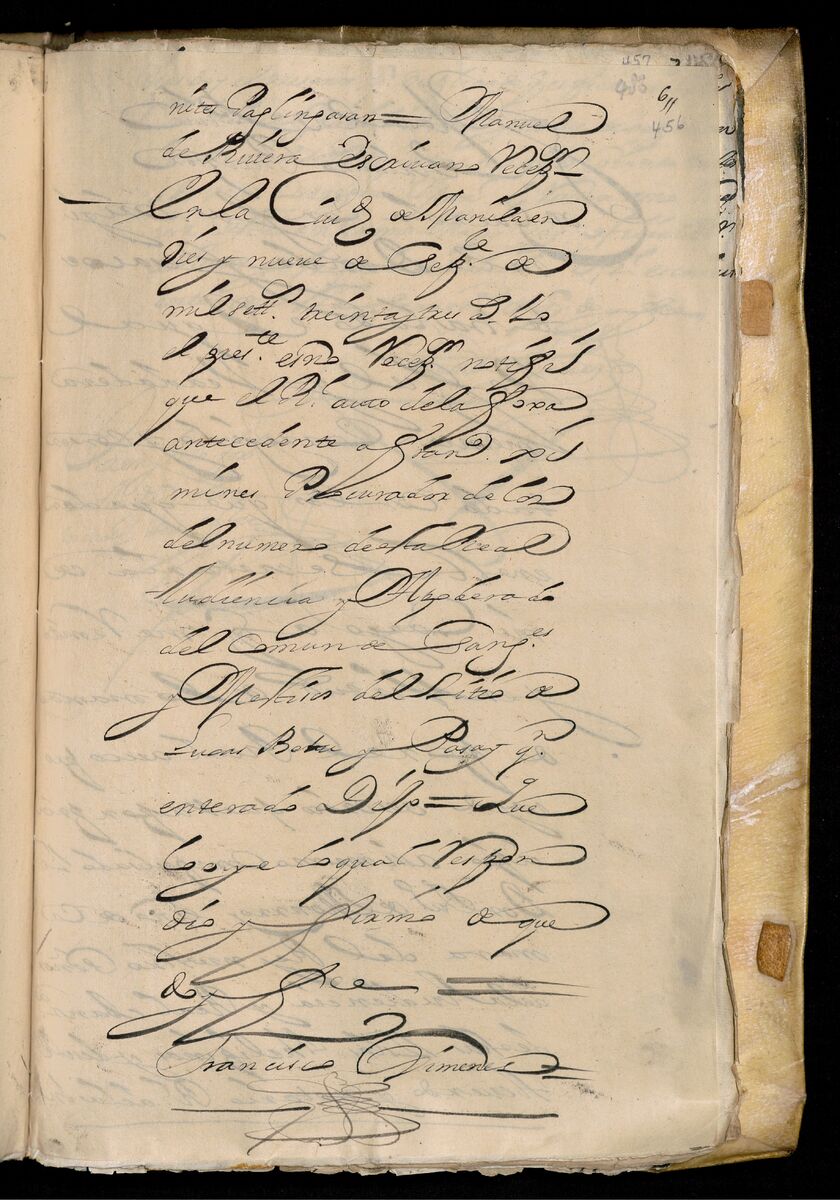 457
456
6,,
456
nites Paglingasan = Manuel
de Rivera Escrivano Recepr
En la Ciud de Manila en
dies y nueve de Sepbe de
mil sets treinta y tres as Lo
el preste essno Recepr notifiq
que el Rl auto de la foxa
antecedente a Franco Xi
mines Procurador de los
del numero desta Real
Audiencia y Apoderado
del Comun de Sangles
y Mestisos del Sitio de
Lucas Betu y Pasay qn
enterado Dijo = Que
lo oye lo qual Respon
dio y firmó de que
doy fee
Francisco Ximenes